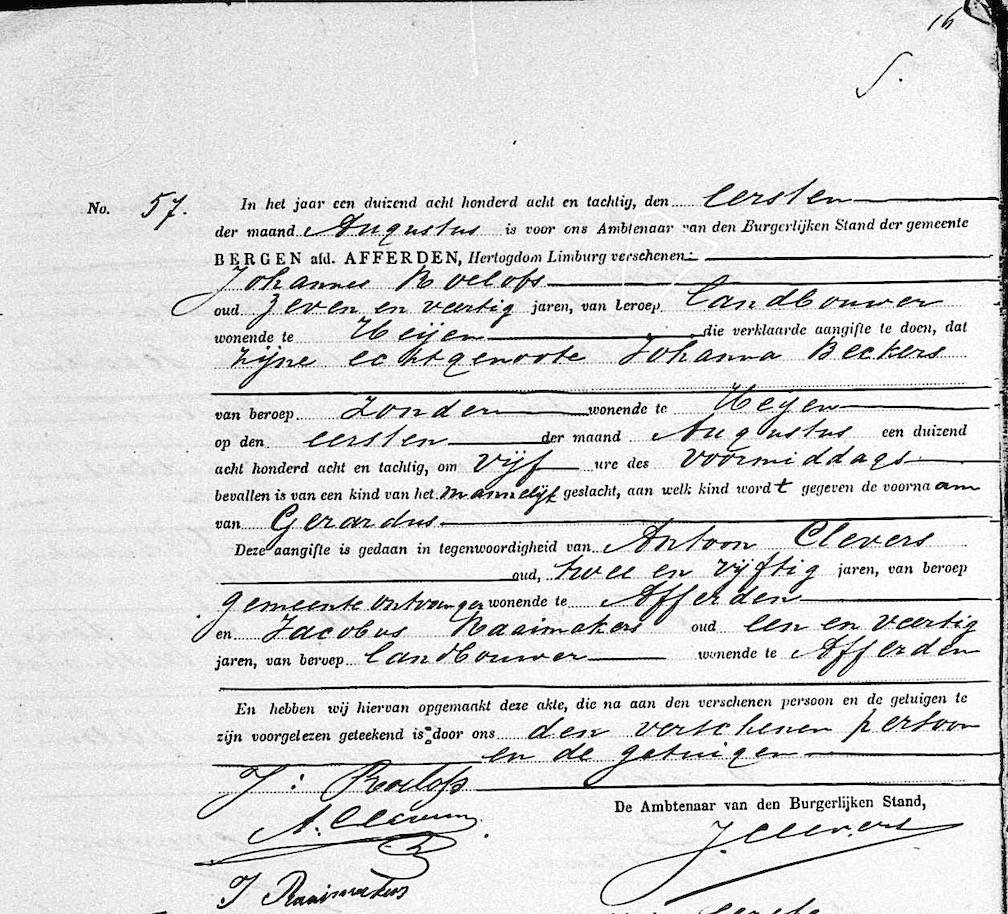 16
S.
No. 57. In het jaar een duizend acht honderd acht en tachtig, den eersten
der maand Augustus is voor ons Ambtenaar van den Burgerlijken Stand der gemeente
BERGEN afd. AFFERDEN, Hertogdom Limburg verschenen:
Johannes Roelofs
oud zeven en veertig jaren, van beroep landbouwer
wonende te Heijen die verklaarde aangifte te doen, dat
zijne echtgenoote Johanna Beckers
van beroep zonder wonende te Heijen
op den eersten der maand Augustus een duizend
acht honderd acht en tachtig, om vijf ure des voormiddags
bevallen is van een kind van het mannelijk geslacht, aan welk kind wordt gegeven de voornaam
van Gerardus
Deze aangifte is gedaan in tegenwoordigheid van Antoon Clevers
oud, twee en vijftig jaren, van beroep
gemeente ontvanger wonende te Afferden
en Jacobus Raaimakers oud een en veertig
jaren, van beroep landbouwer wonende te Afferden
En hebben wij hiervan opgemaakt deze akte, die na aan den verschenen persoon en de getuigen te
zijn voorgelezen geteekend is door ons den verschenen persoon
en de getuigen
J: Roelofs
De Ambtenaar van den Burgerlijken Stand,
A. Clevers
J. Clevers
J Raaimakers